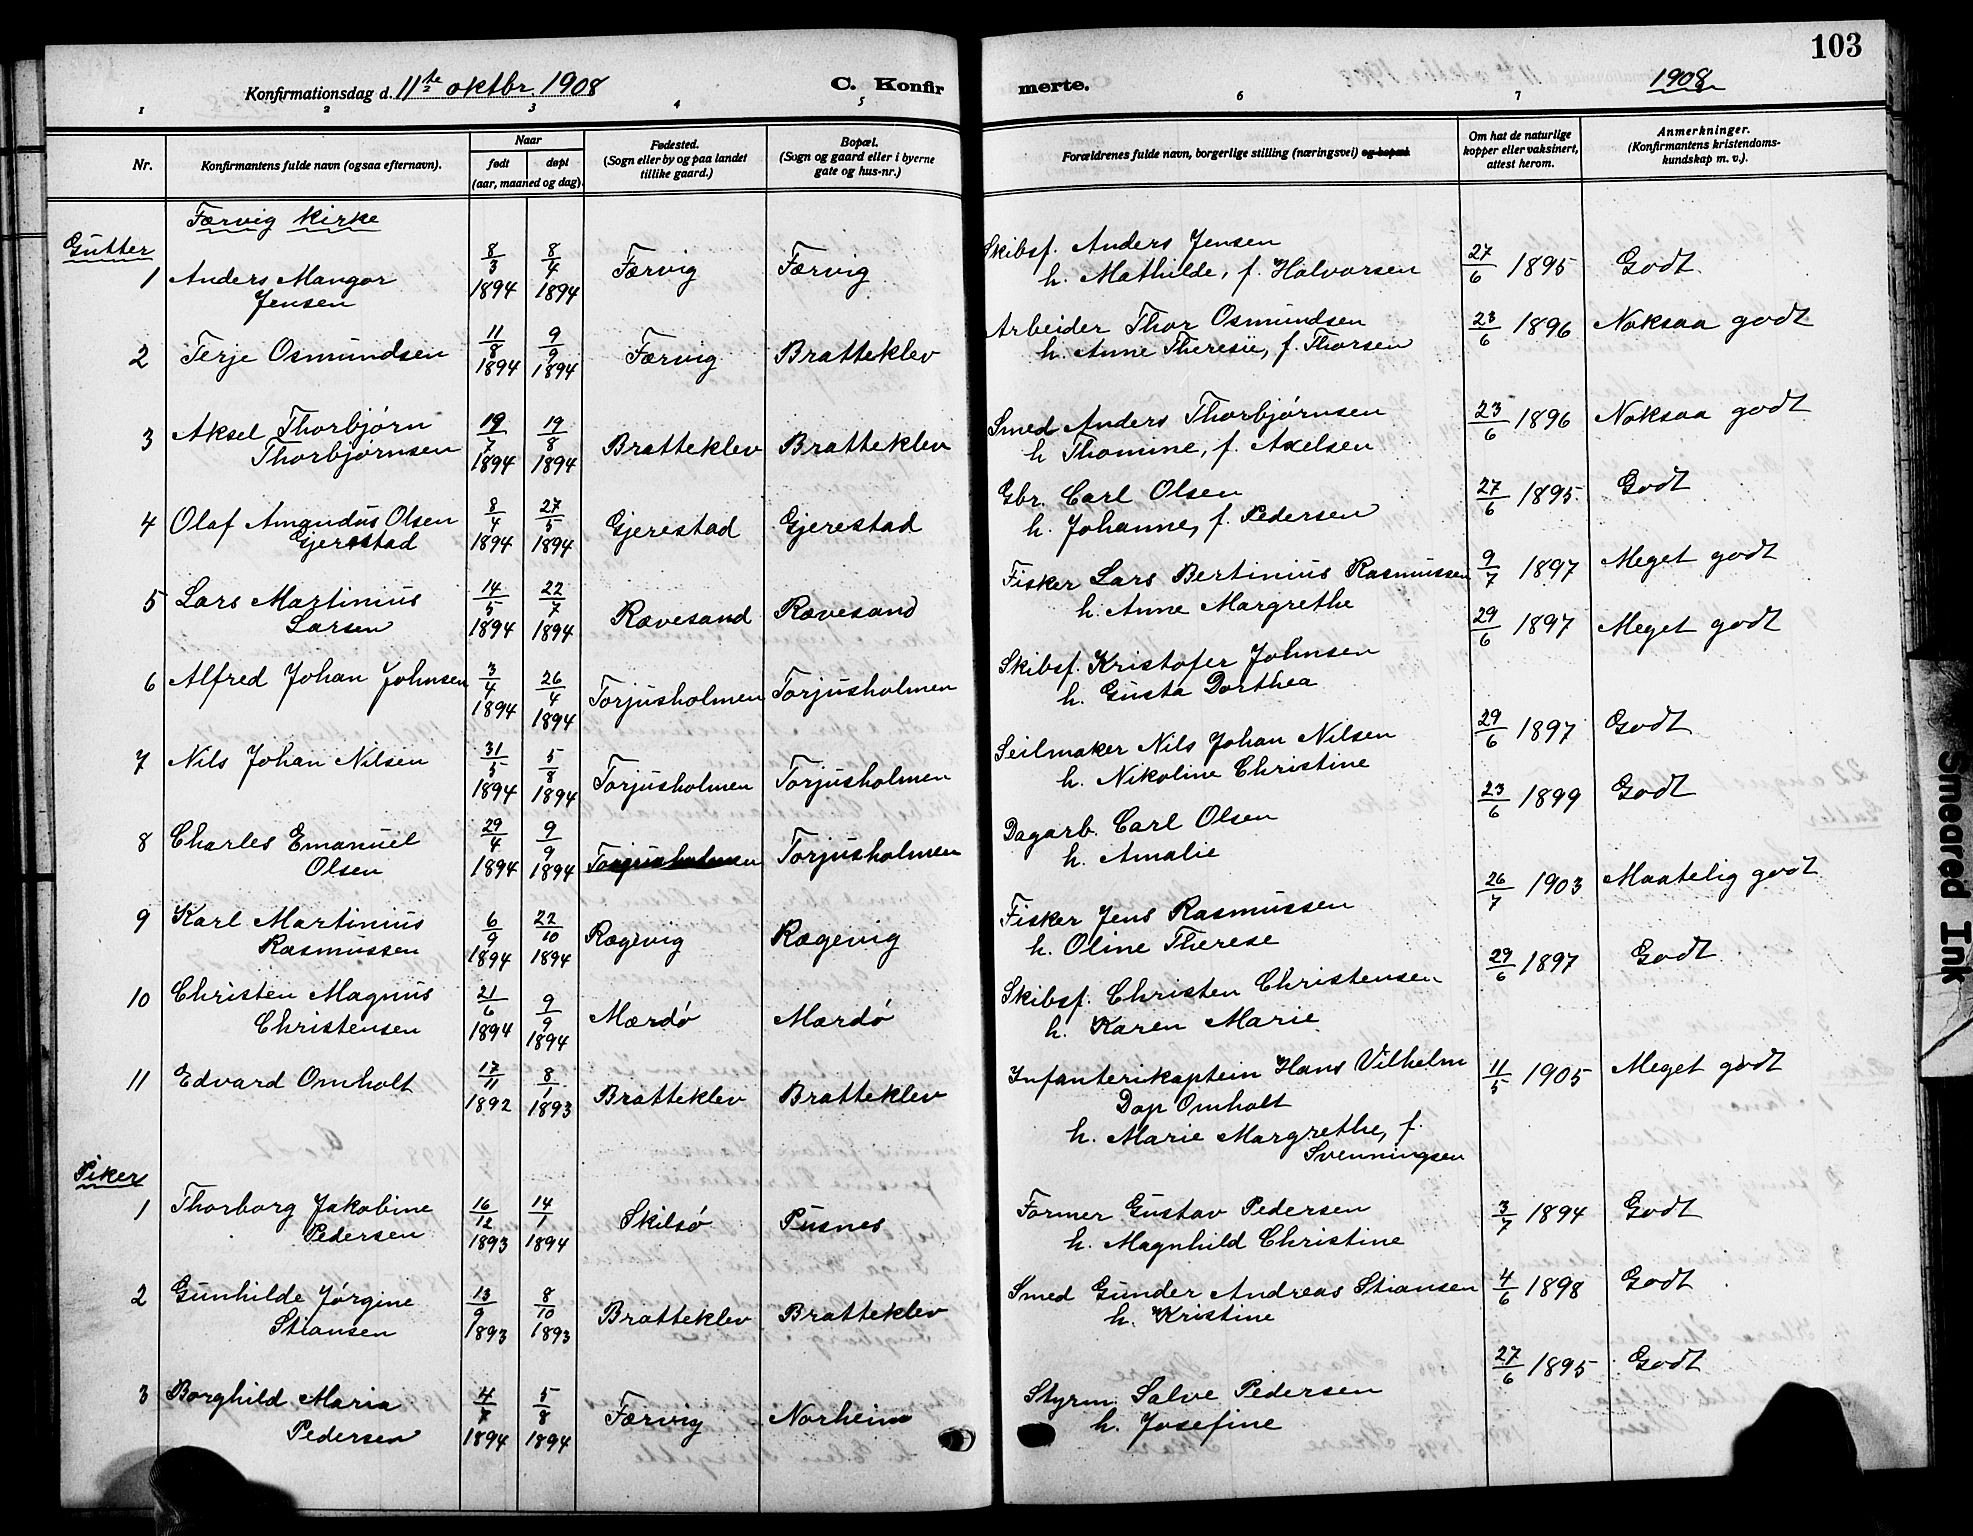 103
Konfirmationsdag d. 11te oktbr. 1908
C. Konfir
merte.
1908
1 2 3 4 5
6 7
Nr.
Konfirmantens fulde navn (ogsaa efternavn).
Naar
født døpt
(aar, maaned og dag).
Fødested.
(Sogn eller by og paa landet
tillike gaard.)
Bopæl.
(Sogn og gaard eller i byerne
gate og hus-nr.)
Forældrenes fulde navn, borgerlige stilling (næringsvei) og bopæl.
Om hat de naturlige
kopper eller vaksinert,
attest herom.
Anmerkninger.
(Konfirmantens kristendoms-
kundskap m. v.).
Færvig kirke
Gutter
1 Anders Mangor Jensen 8/3 1894 8/4 1894 Færvig Færvig
Skibsf. Anders Jensen
h. Mathilde, f. Halvorsen 27/6 1895 Godt
2 Terje Osmundsen 11/8 1894 9/9 1894 Færvig Bratteklev
Arbeider Thor Osmundsen
h. Anne Theresie, f. Thorsen 23/6 1896 Noksaa godt
3 Aksel Thorbjørn Thorbjørnsen 19/7 1894 19/8 1894 Bratteklev Bratteklev
Smed Anders Thorbjørnsen
h Thomine, f. Axelsen 23/6 1896 Noksaa godt
4 Olaf Amandus Olsen Gjerestad 8/4 1894 27/5 1894 Gjerestad Gjerestad
Gbr. Carl Olsen
h. Johanne, f. Pedersen 27/6 1895 Godt
5 Lars Martinius Larsen 14/5 1894 22/7 1894 Rævesand Rævesand
Fisker Lars Bertinius Rasmussen
h. Anne Margrethe 9/7 1897 Meget godt
6 Alfred Johan Johnsen 3/4 1894 26/4 1894 Torjusholmen Torjusholmen
Skibsf. Kristofer Johnsen
h. Gusta Dorthea 29/6 1897 Meget godt
7 Nils Johan Nilsen 31/5 1894 5/8 1894 Torjusholmen Torjusholmen
Seilmaker Nils Johan Nilsen
h. Nikoline Christine 29/6 1897 Godt
8 Charles Emanuel Olsen 29/4 1894 9/9 1894 Torjusholmen Torjusholmen
Dagarb. Carl Olsen
h. Amalie 23/6 1899 Godt
9 Karl Martinius Rasmussen 6/9 1894 22/10 1894 Rægevig Rægevig
Fisker Jens Rasmussen
h. Oline Therese 26/7 1903 Maatelig godt
10 Christen Magnus Christensen 21/6 1894 9/9 1894 Mærdø Mærdø
Skibsf. Christen Christensen
h. Karen Marie 29/6 1897 Godt
11 Edvard Omholt 17/11 1892 8/1 1893 Bratteklev Bratteklev
Infanterikaptein Hans Vilhelm
Dop Omholt
h. Marie Margrethe, f.
Svenningsen 11/5 1905 Meget godt
Piker
1 Thorborg Jakobine Pedersen 16/12 1893 14/1 1894 Skilsø Pusnes
Former Gustav Pedersen
h. Magnhild Christine 3/7 1894 Godt
2 Gunhilde Jørgine Stiansen 13/9 1893 8/10 1893 Bratteklev Bratteklev
Smed Gunder Andreas Stiansen
h. Kristine 4/6 1898 Godt
3 Borghild Maria Pedersen 4/7 1894 5/8 1894 Færvig Norheim
Styrm. Salve Pedersen
h. Josefine 27/6 1895 Godt
Smeared Ink